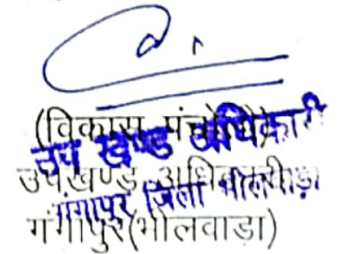 (विकास पंचोली)
उप खण्ड अधिकारी
उपखण्ड अधिकारी
गंगापुर जिला भीलवाड़ा
गंगापुर(भीलवाडा)